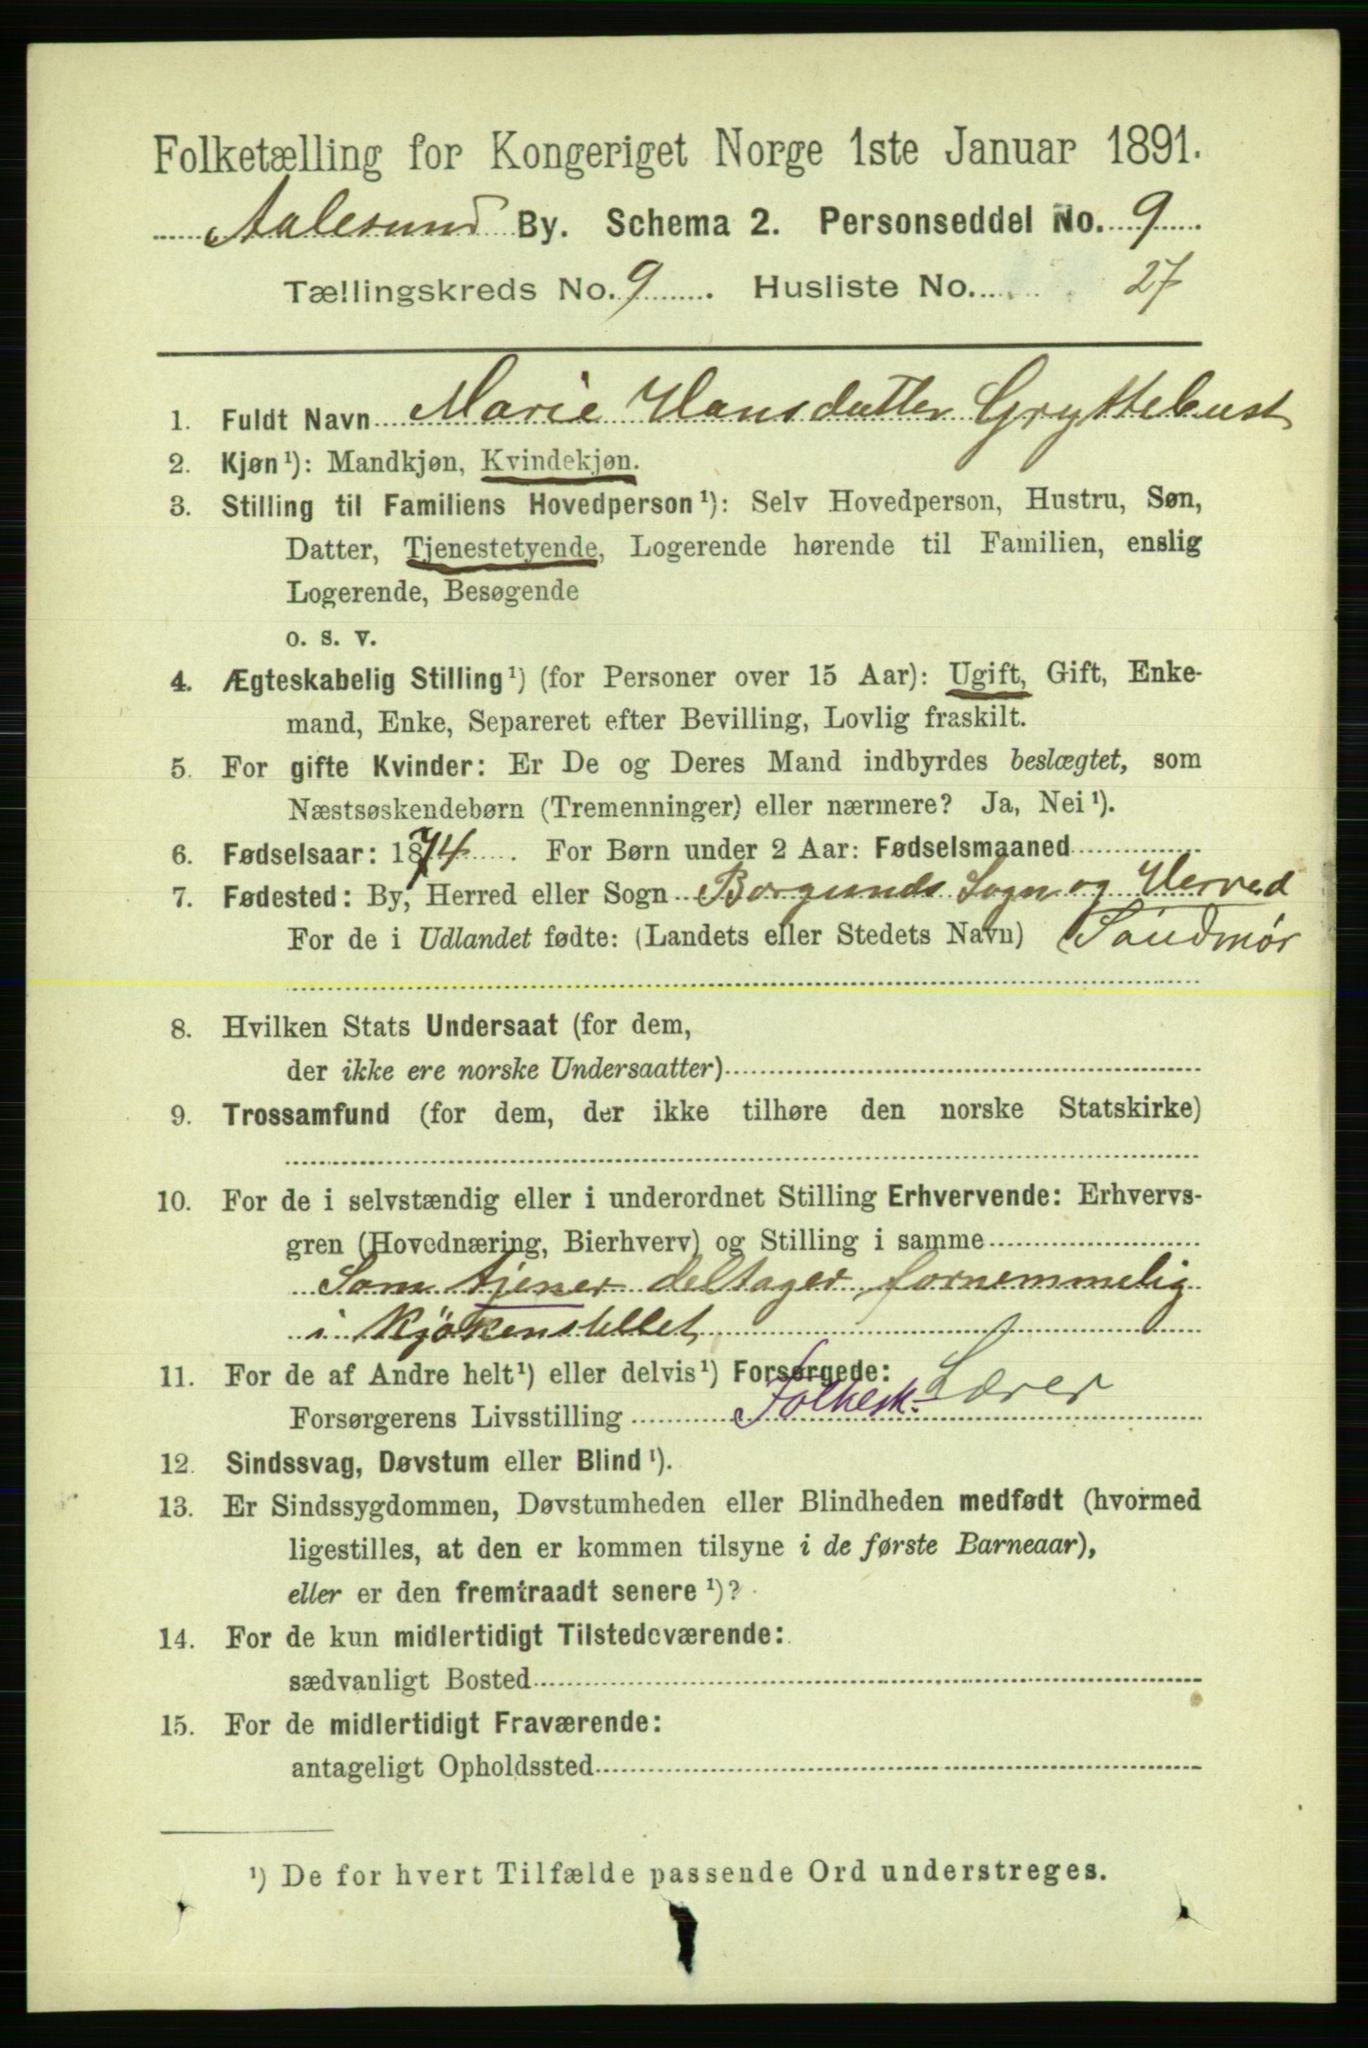 Folketælling for Kongeriget Norge 1ste Januar 1891.
Aalesund By. Schema 2. Personseddel No. 9
Tællingskreds No. 9 Husliste No. 27
1. Fuldt Navn Marie Hansdatter Gryttebust
2. Kjøn¹): Mandkjøn, Kvindekjøn.
3. Stilling til Familiens Hovedperson¹): Selv Hovedperson, Hustru, Søn,
Datter, Tjenestetyende, Logerende hørende til Familien, enslig
Logerende, Besøgende
o. s. v.
4. Ægteskabelig Stilling¹) (for Personer over 15 Aar): Ugift, Gift, Enke-
mand, Enke, Separeret efter Bevilling, Lovlig fraskilt.
5. For gifte Kvinder: Er De og Deres Mand indbyrdes beslægtet, som
Næstsøskendebørn (Tremenninger) eller nærmere? Ja, Nei¹).
6. Fødselsaar: 1874. For Børn under 2 Aar: Fødselsmaaned
7. Fødested: By, Herred eller Sogn Borgunds Sogn og Herred
For de i Udlandet fødte: (Landets eller Stedets Navn) Søndmør
8. Hvilken Stats Undersaat (for dem,
der ikke ere norske Undersaatter)
9. Trossamfund (for dem, der ikke tilhøre den norske Statskirke)
10. For de i selvstændig eller i underordnet Stilling Erhvervende: Erhvervs-
gren (Hovednæring, Bierhverv) og Stilling i samme
Som tjener deltager fornemmelig
i Kjøkenstellet
11. For de af Andre helt¹) eller delvis¹) Forsørgede:
Forsørgerens Livsstilling Folkesk. Lærer
12. Sindssvag, Døvstum eller Blind¹).
13. Er Sindssygdommen, Døvstumheden eller Blindheden medfødt (hvormed
ligestilles, at den er kommen tilsyne i de første Barneaar),
eller er den fremtraadt senere¹)?
14. For de kun midlertidigt Tilstedeværende:
sædvanligt Bosted
15. For de midlertidigt Fraværende:
antageligt Opholdssted
¹) De for hvert Tilfælde passende Ord understreges.